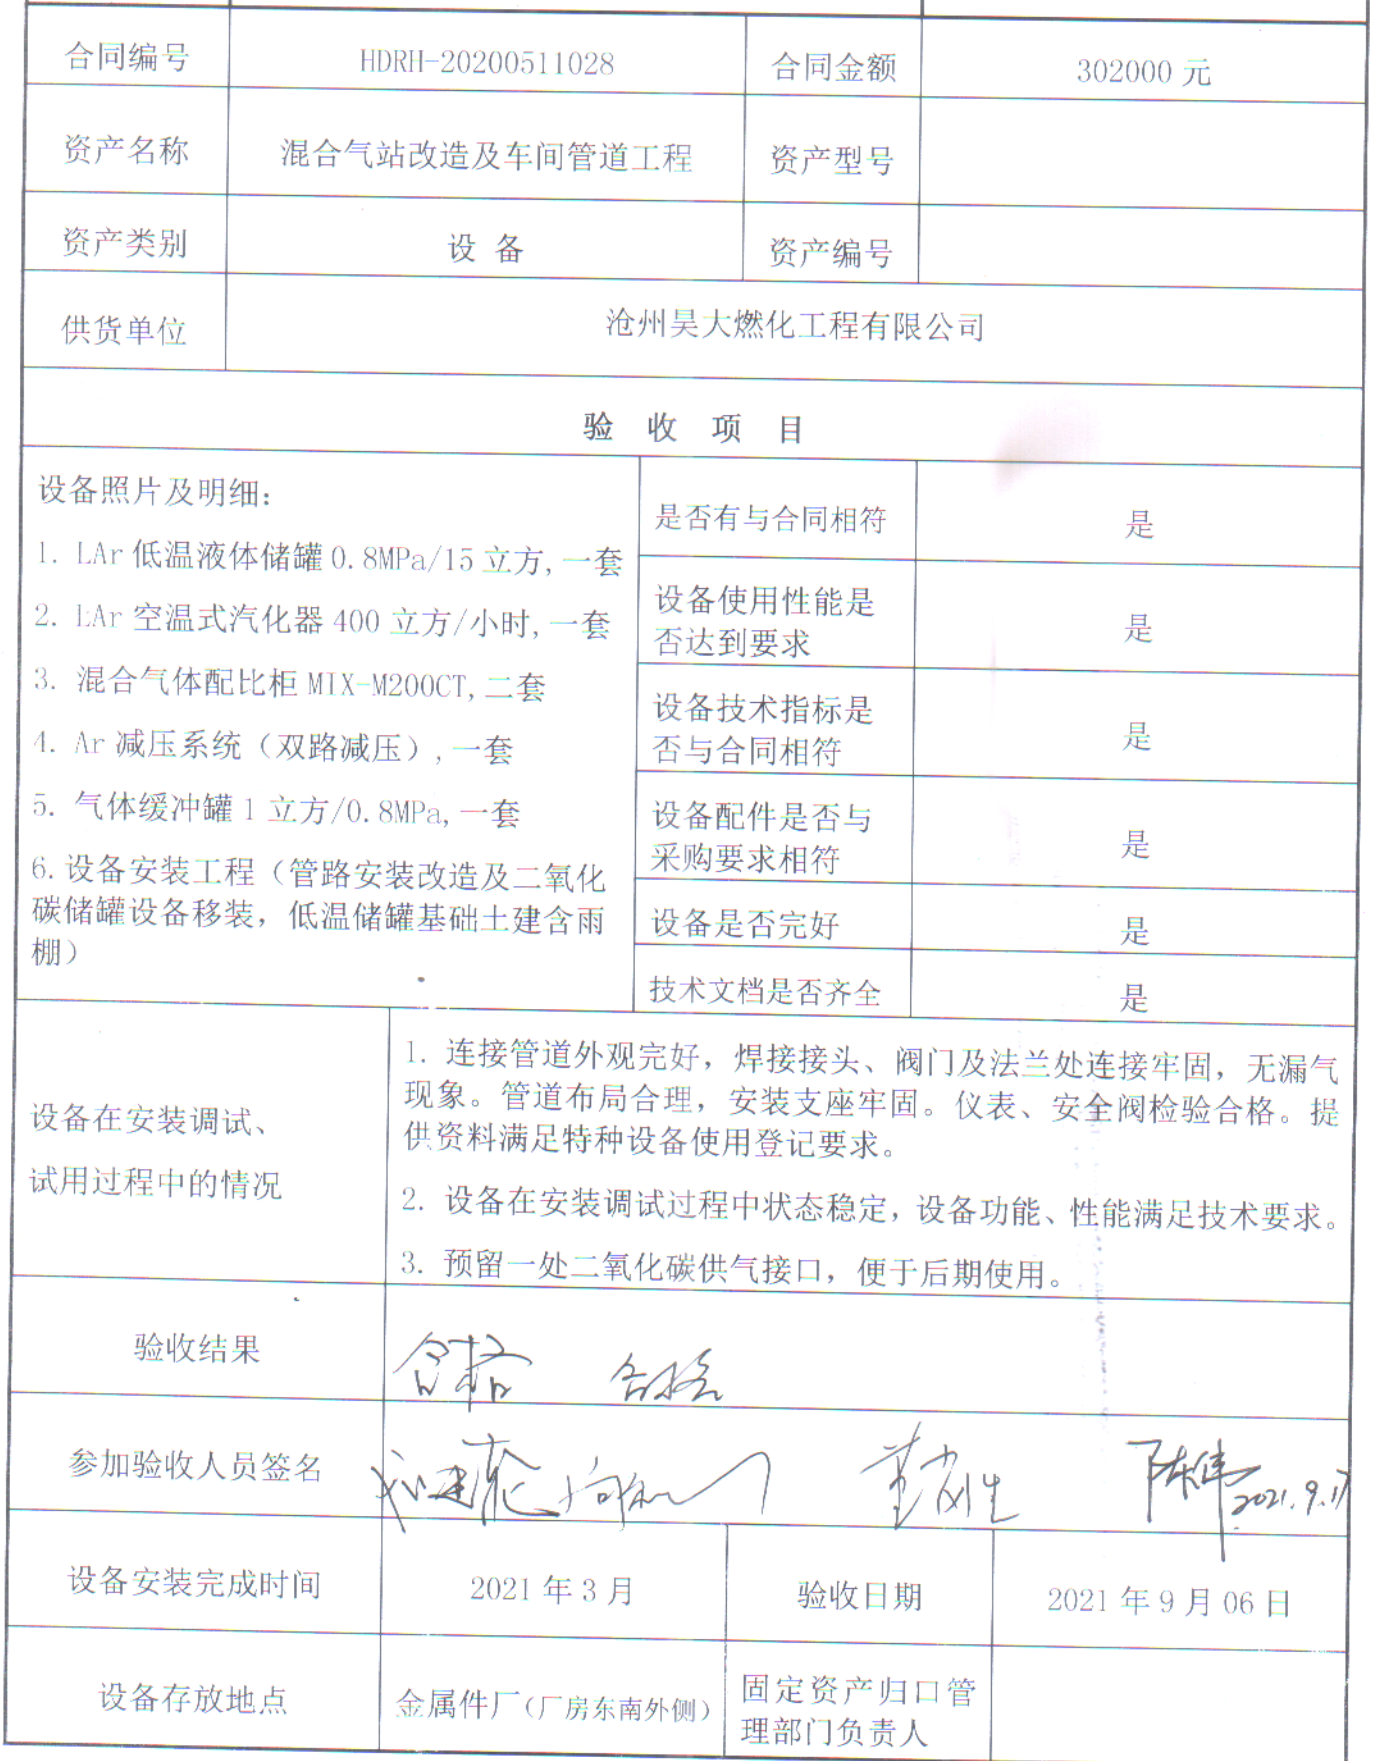 合同编号 HDRH-20200511028 合同金额 302000 元
资产名称 混合气站改造及车间管道工程 资产型号
资产类别 设 备 资产编号
供货单位 沧州昊大燃化工程有限公司
验 收 项 目
设备照片及明细:
1. LAr 低温液体储罐 0.8MPa/15 立方, 一套
2. LAr 空温式汽化器 400 立方/小时, 一套
3. 混合气体配比柜 MIX-M200CT, 二套
4. Ar 减压系统（双路减压）, 一套
5. 气体缓冲罐 1 立方/0.8MPa, 一套
6. 设备安装工程（管路安装改造及二氧化
碳储罐设备移装，低温储罐基础土建含雨
棚）
是否有与合同相符 是
设备使用性能是
否达到要求 是
设备技术指标是
否与合同相符 是
设备配件是否与
采购要求相符 是
设备是否完好 是
技术文档是否齐全 是
设备在安装调试、
试用过程中的情况
1. 连接管道外观完好，焊接接头、阀门及法兰处连接牢固，无漏气
现象。管道布局合理，安装支座牢固。仪表、安全阀检验合格。提
供资料满足特种设备使用登记要求。
2. 设备在安装调试过程中状态稳定，设备功能、性能满足技术要求。
3. 预留一处二氧化碳供气接口，便于后期使用。
验收结果 合格 合格
参加验收人员签名 陈伟 2021.9.17
设备安装完成时间 2021 年 3 月 验收日期 2021 年 9 月 06 日
设备存放地点 金属件厂（厂房东南外侧） 固定资产归口管
理部门负责人